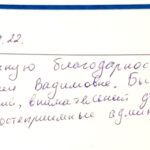 .22.
нную благодарнос
Вадимовне. Бы
внимательной д
остеприимные адми